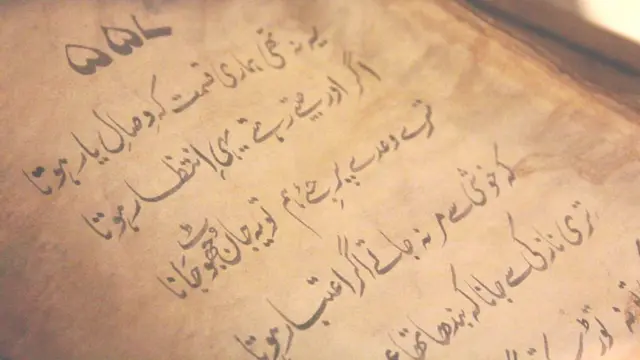 یہ نہ تھی ہماری قسمت کہ وصالِ یار ہوتا
اگر اور جیتے رہتے یہی اِنتظار ہوتا
ترے وعدے پر جئے ہم تو یہ جان جُھوٹ جانا
کہ خوشی سے مر نہ جاتے اگر اعتبار ہوتا
تِری نازکی سے جانا کہ بندھا تھا
نہ توڑ